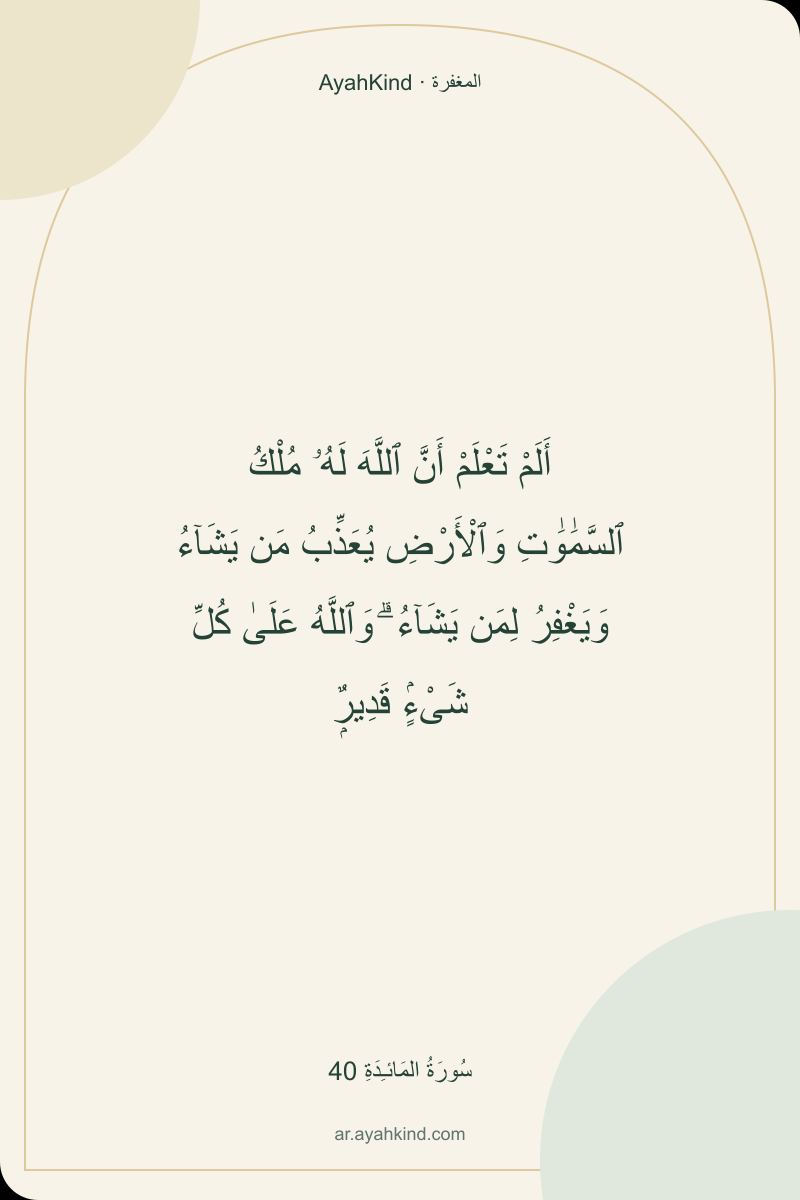 AyahKind · المغفرة
أَلَمْ تَعْلَمْ أَنَّ ٱللَّهَ لَهُۥ مُلْكُ
ٱلسَّمَٰوَٰتِ وَٱلْأَرْضِ يُعَذِّبُ مَن يَشَآءُ
وَيَغْفِرُ لِمَن يَشَآءُ ۗ وَٱللَّهُ عَلَىٰ كُلِّ
شَىْءٍۢ قَدِيرٌۭ
سُورَةُ المَائـِدَةِ 40
ar.ayahkind.com